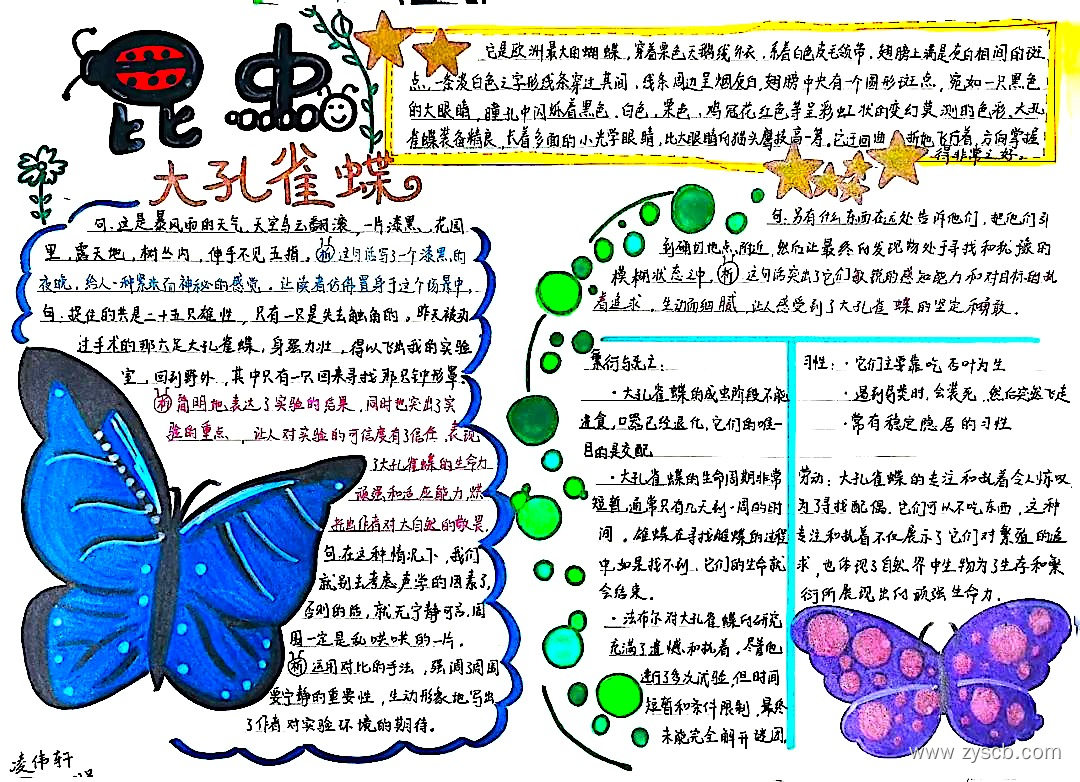 昆虫
大孔雀蝶
它是欧洲最大的蝴蝶，穿着栗色天鹅绒外衣，系着白色皮毛领带，翅膀上满是灰白相间的斑
点，一条淡白色之字形线条穿过其间，线条周边呈烟灰白，翅膀中央有一个圆形斑点，宛如一只黑色
的大眼睛，瞳孔中闪烁着黑色，白色，栗色，鸡冠花红色等呈彩虹状的变幻莫测的色彩，大孔
雀蝶装备精良，长着多面的小光学眼睛，比大眼睛的猫头鹰技高一筹，它迂回曲 断地飞行着，方向掌握
得非常之好。
句：这是暴风雨的天气，天空乌云翻滚，一片漆黑，花园
里，露天地，树丛内，伸手不见五指，析 这句话写了一个漆黑的
夜晚，给人一种紧张而神秘的感觉，让读者仿佛置身于这个场景中，
句：捉住的共是二十五只雄性，只有一只是失去触角的，昨天被动
过手术的那六足大孔雀蝶，身强力壮，得以飞出我的实验
室，回到野外，其中只有一只回来寻找那只钟形罩，
析 简明地表达了实验的结果，同时也突出了实
验的重点，让人对实验的可信度有了信任，表现
了大孔雀蝶的生命力
顽强和适应能力，然
托出作者对大自然的敬畏，
句：在这种情况下，我们
就别去考虑声学的因素了，
否则的话，就无宁静可言，周
围一定是乱哄哄的一片。
析 运用对比的手法，强调了周围
要宁静的重要性，生动形象地写出
了作者对实验环境的期待。
凌伟轩
句：另有什么东西在远处告诉他们，把他们引
到确切地点附近，然后让最终的发现物处于寻找和犹豫的
模糊状态之中，析 这句话突出了它们敏锐的感知能力和对目标的执
着追求，生动而细腻，让人感受到了大孔雀蝶的坚定和勇敢。
繁衍与死亡：
·大孔雀蝶的成虫阶段不能
进食，口器已经退化，它们的唯一
目的是交配
·大孔雀蝶的生命周期非常
短暂，通常只有几天到一周的时
间，雄蝶在寻找雌蝶的过程
中，如是找不到，它们的生命就
会结束。
·法布尔对大孔雀蝶的研究
充满了遗憾和执着，尽管他
进行了多次试验，但时间
短暂和条件限制，最终
未能完全解开谜团。
习性：·它们主要靠吃杏叶为生
·遇到鸟类时，会装死，然后突然飞走
·常有稳定隐居的习性
劳动：大孔雀蝶的专注和执着令人惊叹，
为了寻找配偶，它们可以不吃东西，这种
专注和执着不仅展示了它们对繁殖的追
求，也体现了自然界中生物为了生存和繁
衍所展现出的顽强生命力。
www.zyscb.com